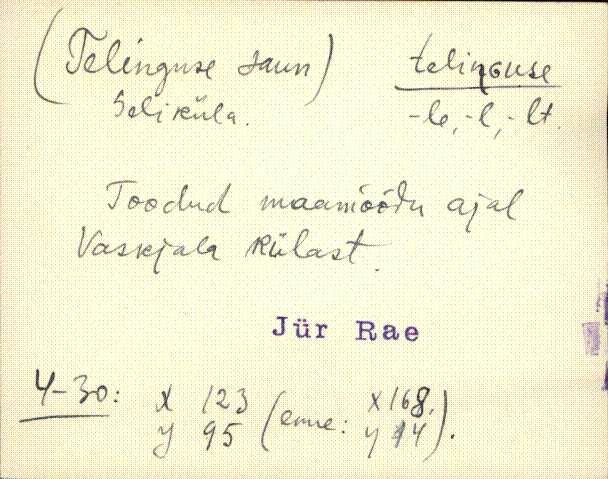 (Telinguse saun) telinguse
Seliküla. -le, -l, -lt.
Toodud maamõõdu ajal
Vaskjala külast.
Jür Rae
4-30: x 123 (enne: x 168,
y 95 y 14).